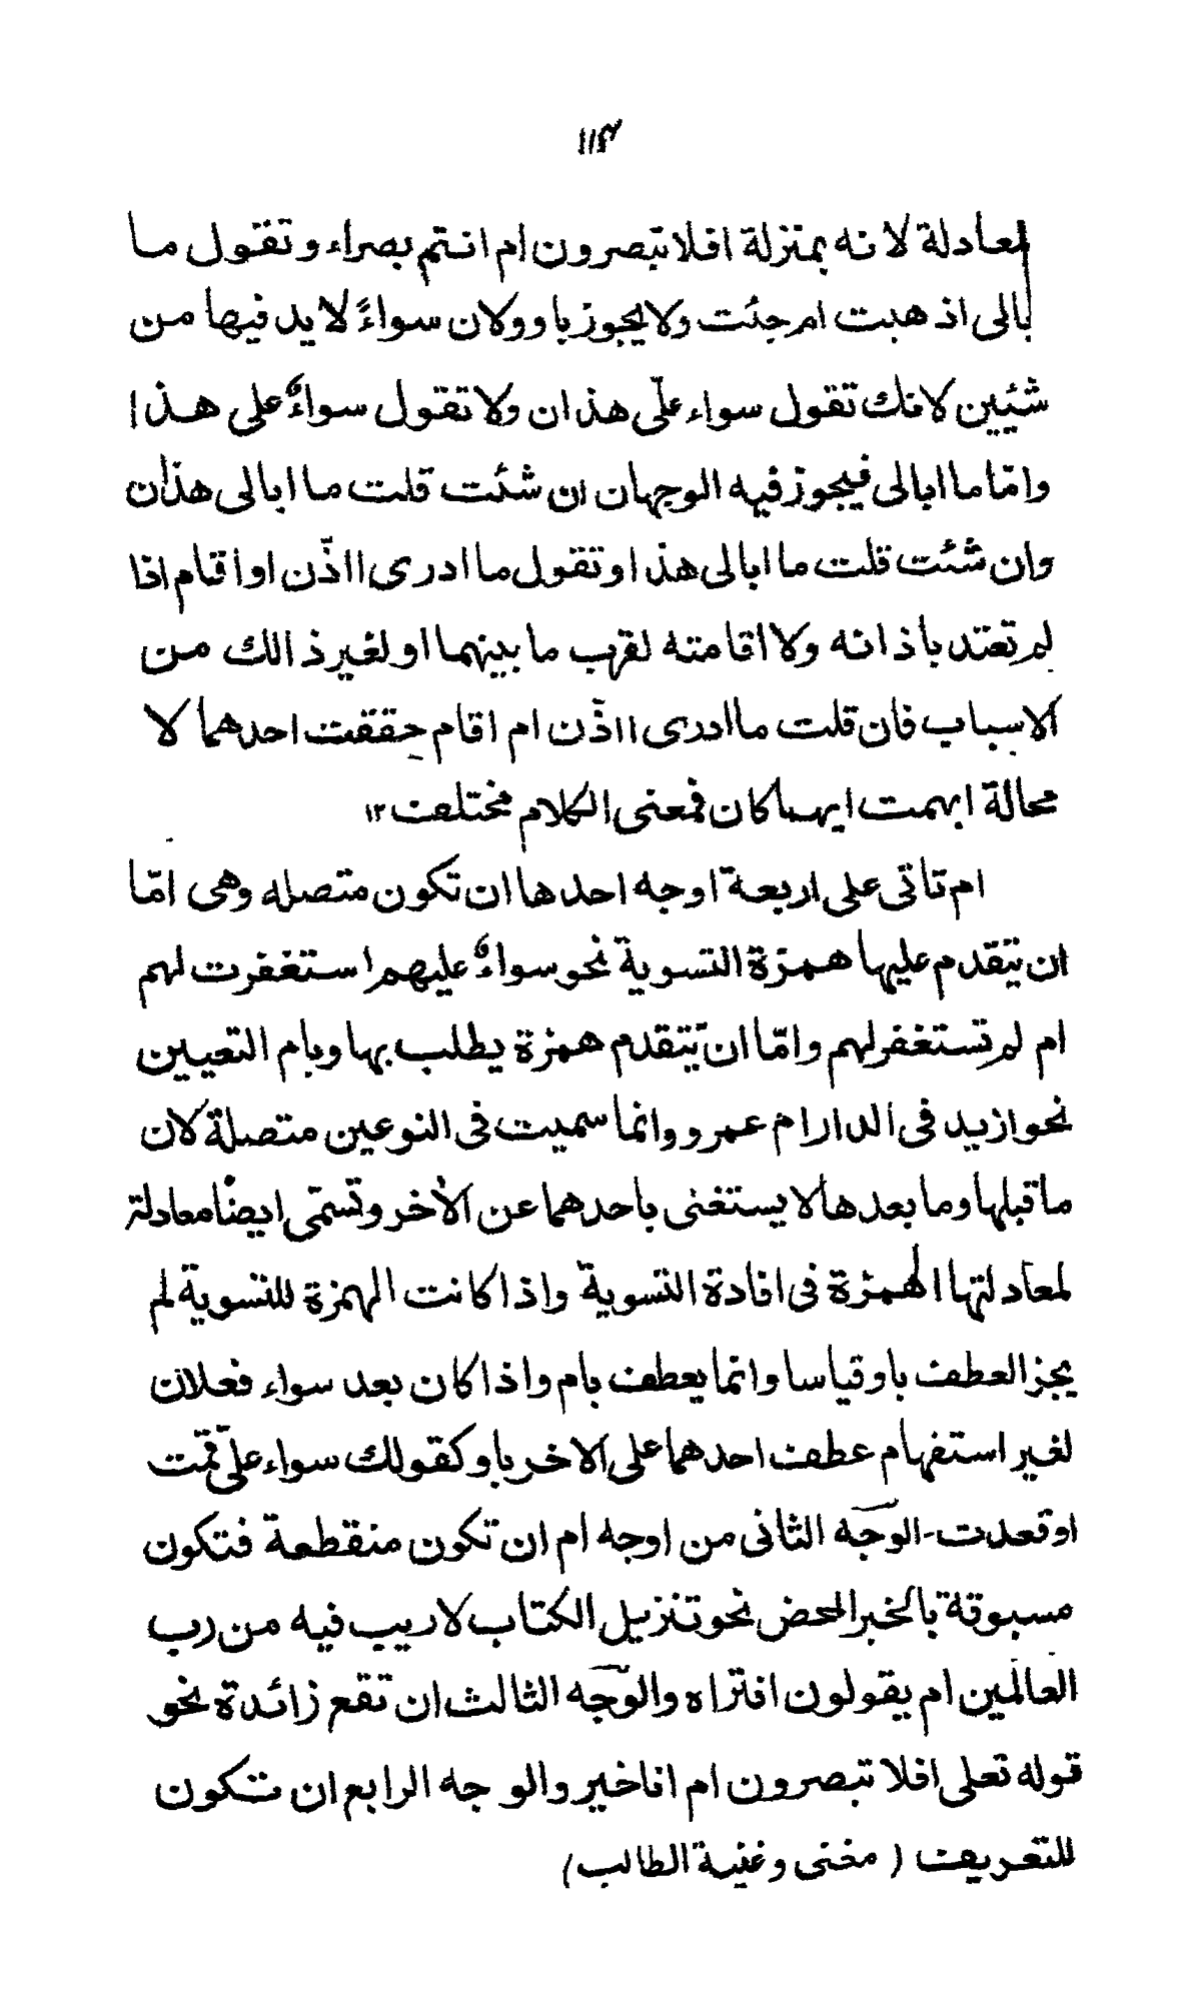 ۱۱۴
لمعادلة لانه بمنزلة افلا تبصرون ام انتم بصراء وتقول ما
بالى اذهبت ام جئت ولا يجوز باو ولان سواءً لابد فيها من
شئيين لانك تقول سواء علىّ هذان ولا تقول سواءٌ على هذا
وامّا ما ابالى فيجوز فيه الوجهان ان شئت قلت ما ابالى هذان
وان شئت قلت ما ابالى هذا وتقول ما ادرى ااذّن او اقام اذا
لم تعتد باذانه ولا اقامته لقرب ما بينهما او لغير ذالك من
الاسباب فان قلت ما ادرى ااذّن ام اقام حققت احدهما لا
محالة ابهمت ايهما كان فمعنى الكلام مختلف ۱۲
ام تاتى على اربعة اوجه احدها ان تكون متصله وهى امّا
ان يتقدم عليها همزة التسوية نحو سواءٌ عليهم استغفرت لهم
ام لم تستغفر لهم وامّا ان يّتقدم همزة يطلب بها وبام التعيين
نحو ازيد فى الدار ام عمرو وانما سميت فى النوعين متصلة لان
ما قبلها وما بعدها لا يستغنى باحدهما عن الأخر وتسمّى ايضًا معادلة
لمعادلتها الهمزة فى افادة التسوية واذا كانت الهمزة للتسوية لم
يجز العطف باو قياسا وانما يعطف بام واذا كان بعد سواء فعلان
لغير استفهام عطف احدهما على الاخر باو كقولك سواء علىّ قمت
او قعدت - الوجه الثانى من اوجه ام ان تكون منقطعة فتكون
مسبوقة بالخبر المحض نحو تنزيل الكتاب لاريب فيه من رب
العالمين ام يقولون افتراه والوجه الثالث ان تقع زائدة نحو
قوله تعلى افلا تبصرون ام انا خير والوجه الرابع ان تكون
للتعريف (مغنى وغنية الطالب)